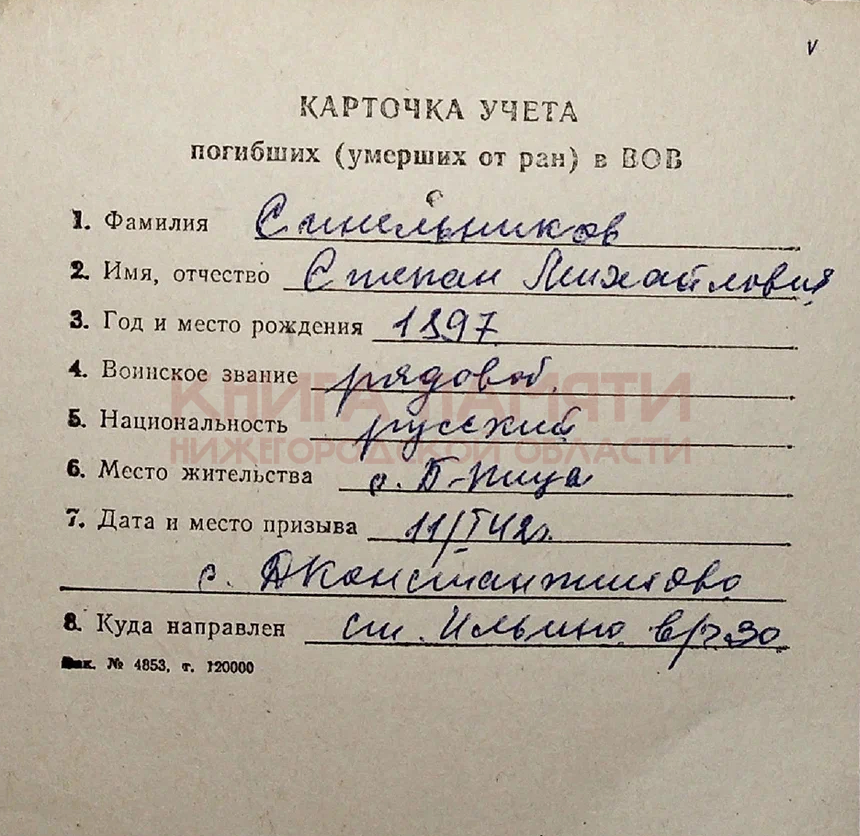 v
КАРТОЧКА УЧЕТА
погибших (умерших от ран) в ВОВ
1. Фамилия Синельников
2. Имя, отчество Степан Михайлович
3. Год и место рождения 1897
4. Воинское звание рядовой.
КНИГА ПАМЯТИ
5. Национальность русский
НИЖЕГОРОДСКОЙ ОБЛАСТИ
6. Место жительства с. Б-Пица
7. Дата и место призыва 11/I 42г.
с. ДКонстантиново
8. Куда направлен ст. Ильино в/ч 30.
Зак. № 4853, т. 120000